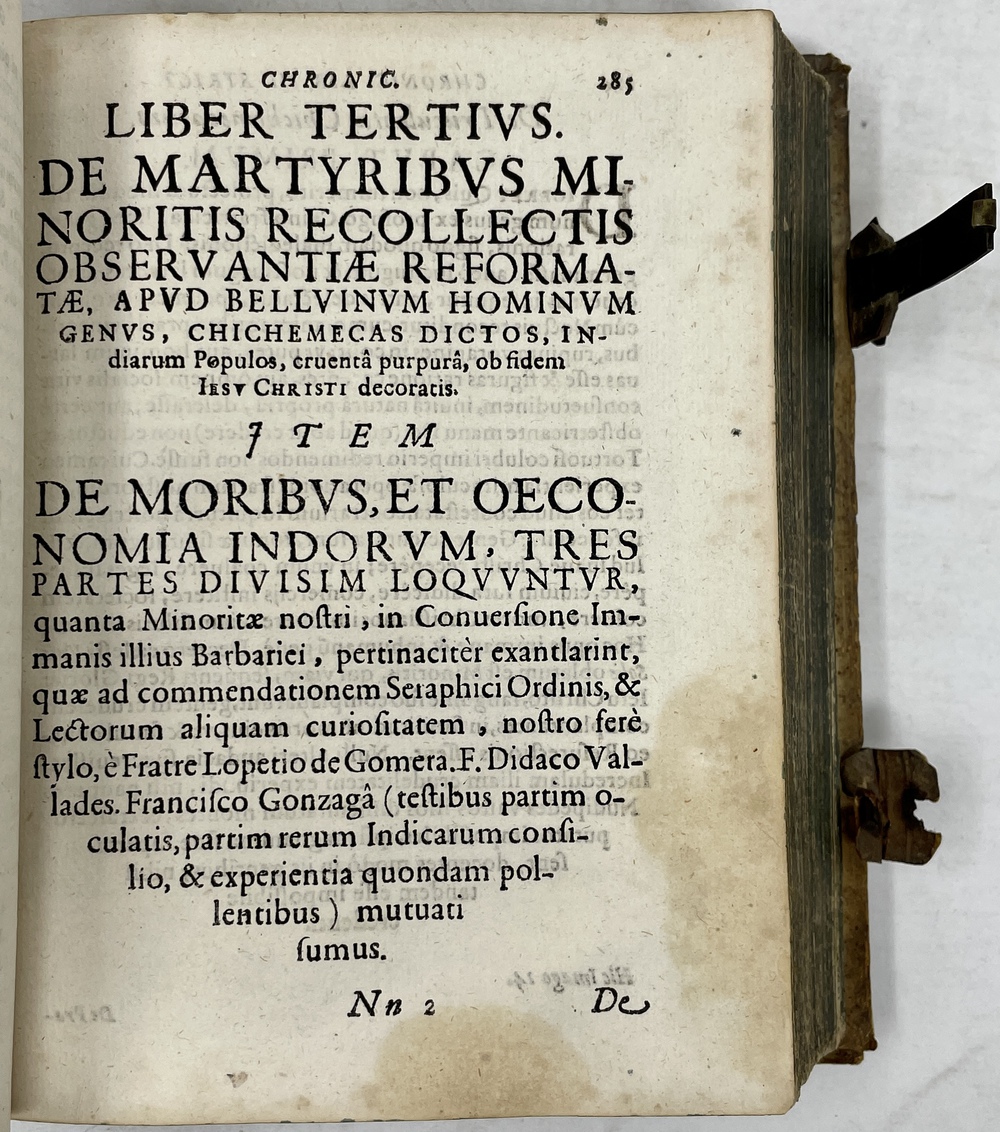 CHRONIC. 285
LIBER TERTIVS.
DE MARTYRIBVS MI-
NORITIS RECOLLECTIS
OBSERVANTIÆ REFORMA-
TÆ, APVD BELLVINVM HOMINVM
GENVS, CHICHEMECAS DICTOS, IN-
diarum Populos, cruentâ purpurâ, ob fidem
IESV CHRISTI decoratis.
ITEM
DE MORIBVS, ET OECO-
NOMIA INDORVM, TRES
PARTES DIVISIM LOQVVNTVR,
quanta Minoritæ noſtri, in Conuerſione Im-
manis illius Barbariei, pertinacitèr exantlarint,
quæ ad commendationem Seraphici Ordinis, &
Lectorum aliquam curioſitatem, noſtro ferè
ſtylo, è Fratre Lopetio de Gomera. F. Didaco Val-
lades. Franciſco Gonzagâ (teſtibus partim o-
culatis, partim rerum Indicarum conſi-
lio, & experientia quondam pol-
lentibus) mutuati
ſumus.
Nn 2 De